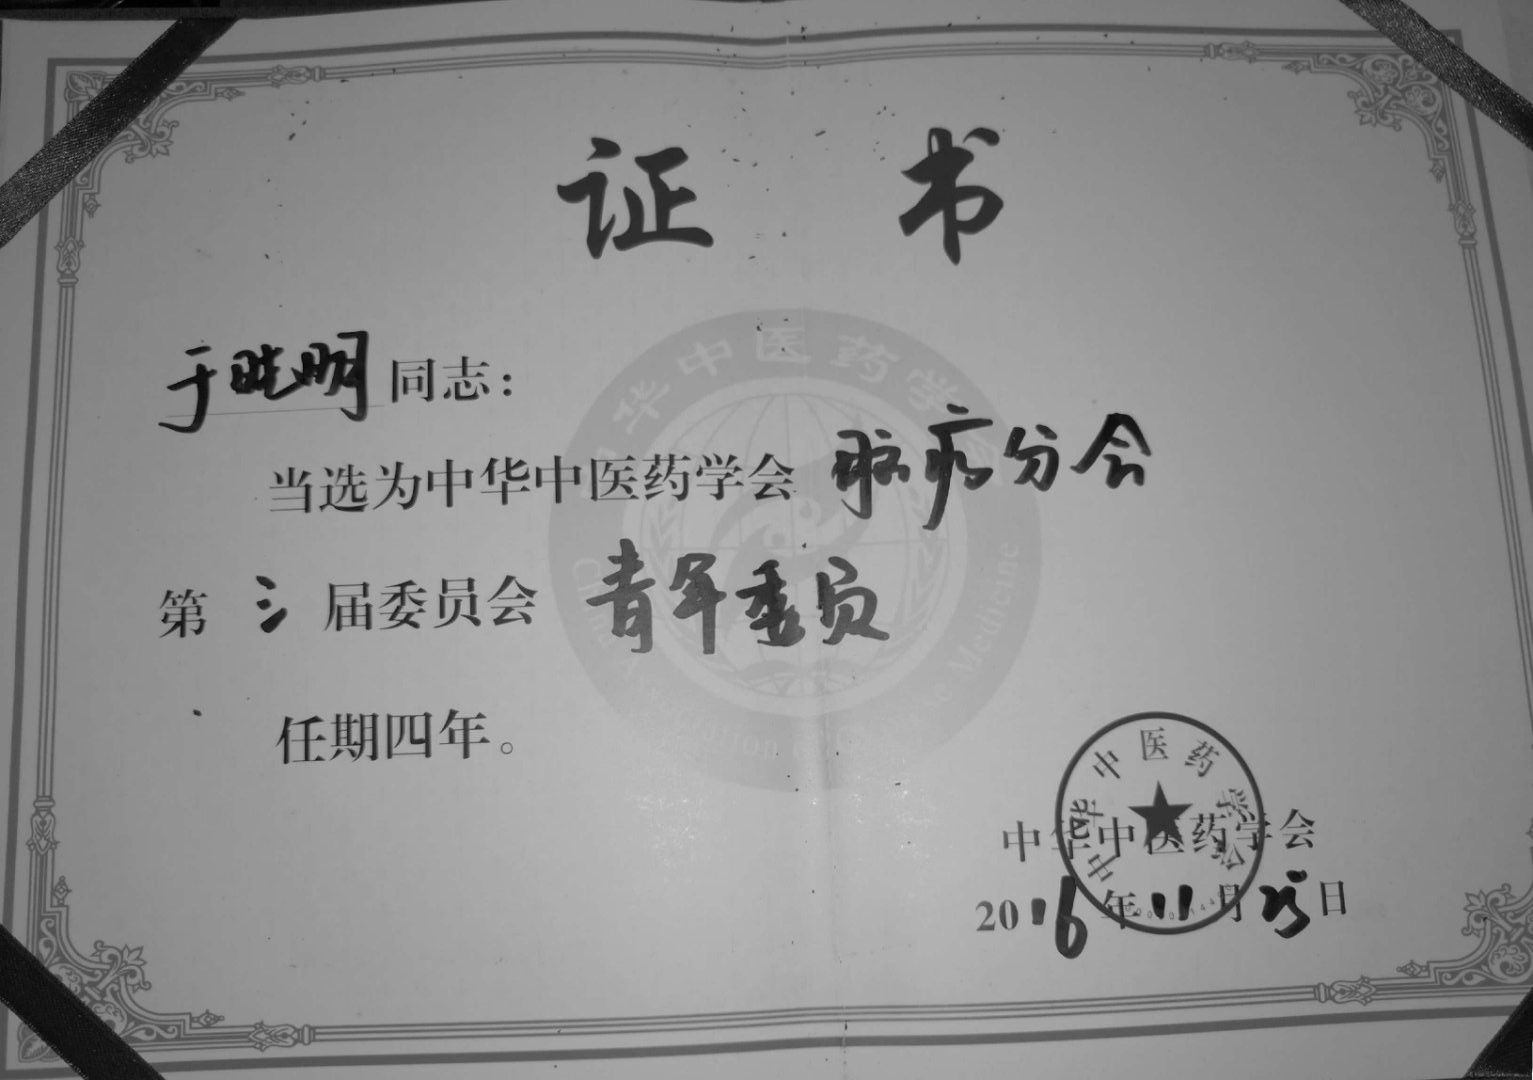 证 书
于晓明同志：
当选为中华中医药学会 脑病分会
第 三 届委员会 青年委员
任期四年。
中华中医药学会
2016年11月25日
中华中医药学会
中华中医药学会